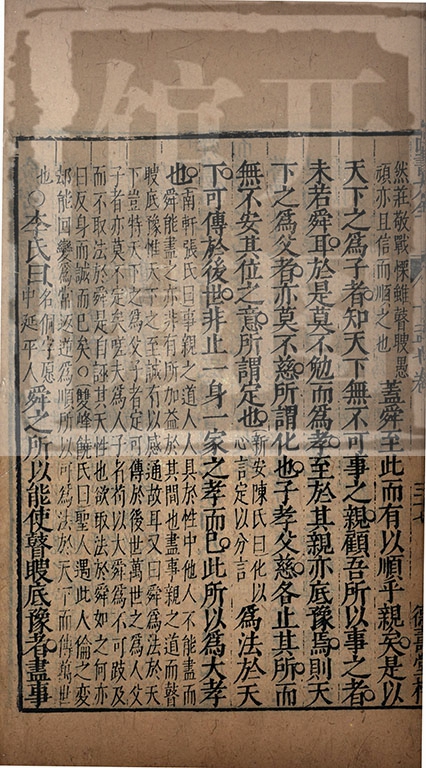 然莊敬戰慄雖瞽瞍愚
頑亦且信而順之也
蓋舜至此而有以順乎親矣是以
天下之爲子者知天下無不可事之親顧吾所以事之者
未若舜耳於是莫不勉而爲孝至於其親亦底豫焉則天
下之爲父者亦莫不慈所謂化也子孝父慈各止其所而
無不安其位之意所謂定也
新安陳氏曰化以
心言定以分言
爲法於天
下可傳於後世非止一身一家之孝而已此所以爲大孝
也
南軒張氏曰事親之道人人具於性中他人不能盡而
舜能盡之亦非有所加益於其間也盡事親之道而瞽
瞍底豫惟天下之至誠有以感通故耳又曰舜爲法於天
下豈特天下之爲父子者定可傳於後世萬世之爲人父
子者亦莫不定矣嗟夫爲人子者苟以大舜爲不可跂及
而不取法於舜是自誣其天性也欲取法於舜如之何亦
曰反身而誠而已矣○雙峰饒氏曰聖人遇此人倫之變
却能回變爲常返逆爲順所以可爲法於天下而傳萬世
也○李氏曰
名侗字愿
中延平人
舜之所以能使瞽瞍底豫者盡事